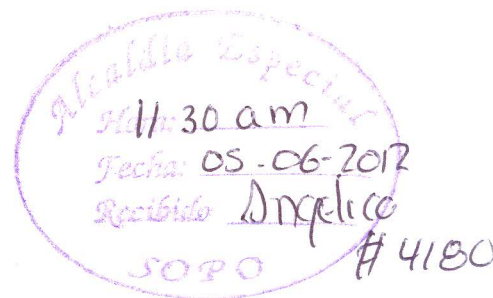 Alcaldia Especial
Hora: 11 30 am
Fecha: 05-06-2012
Recibido Angelica
SOPO
# 4180